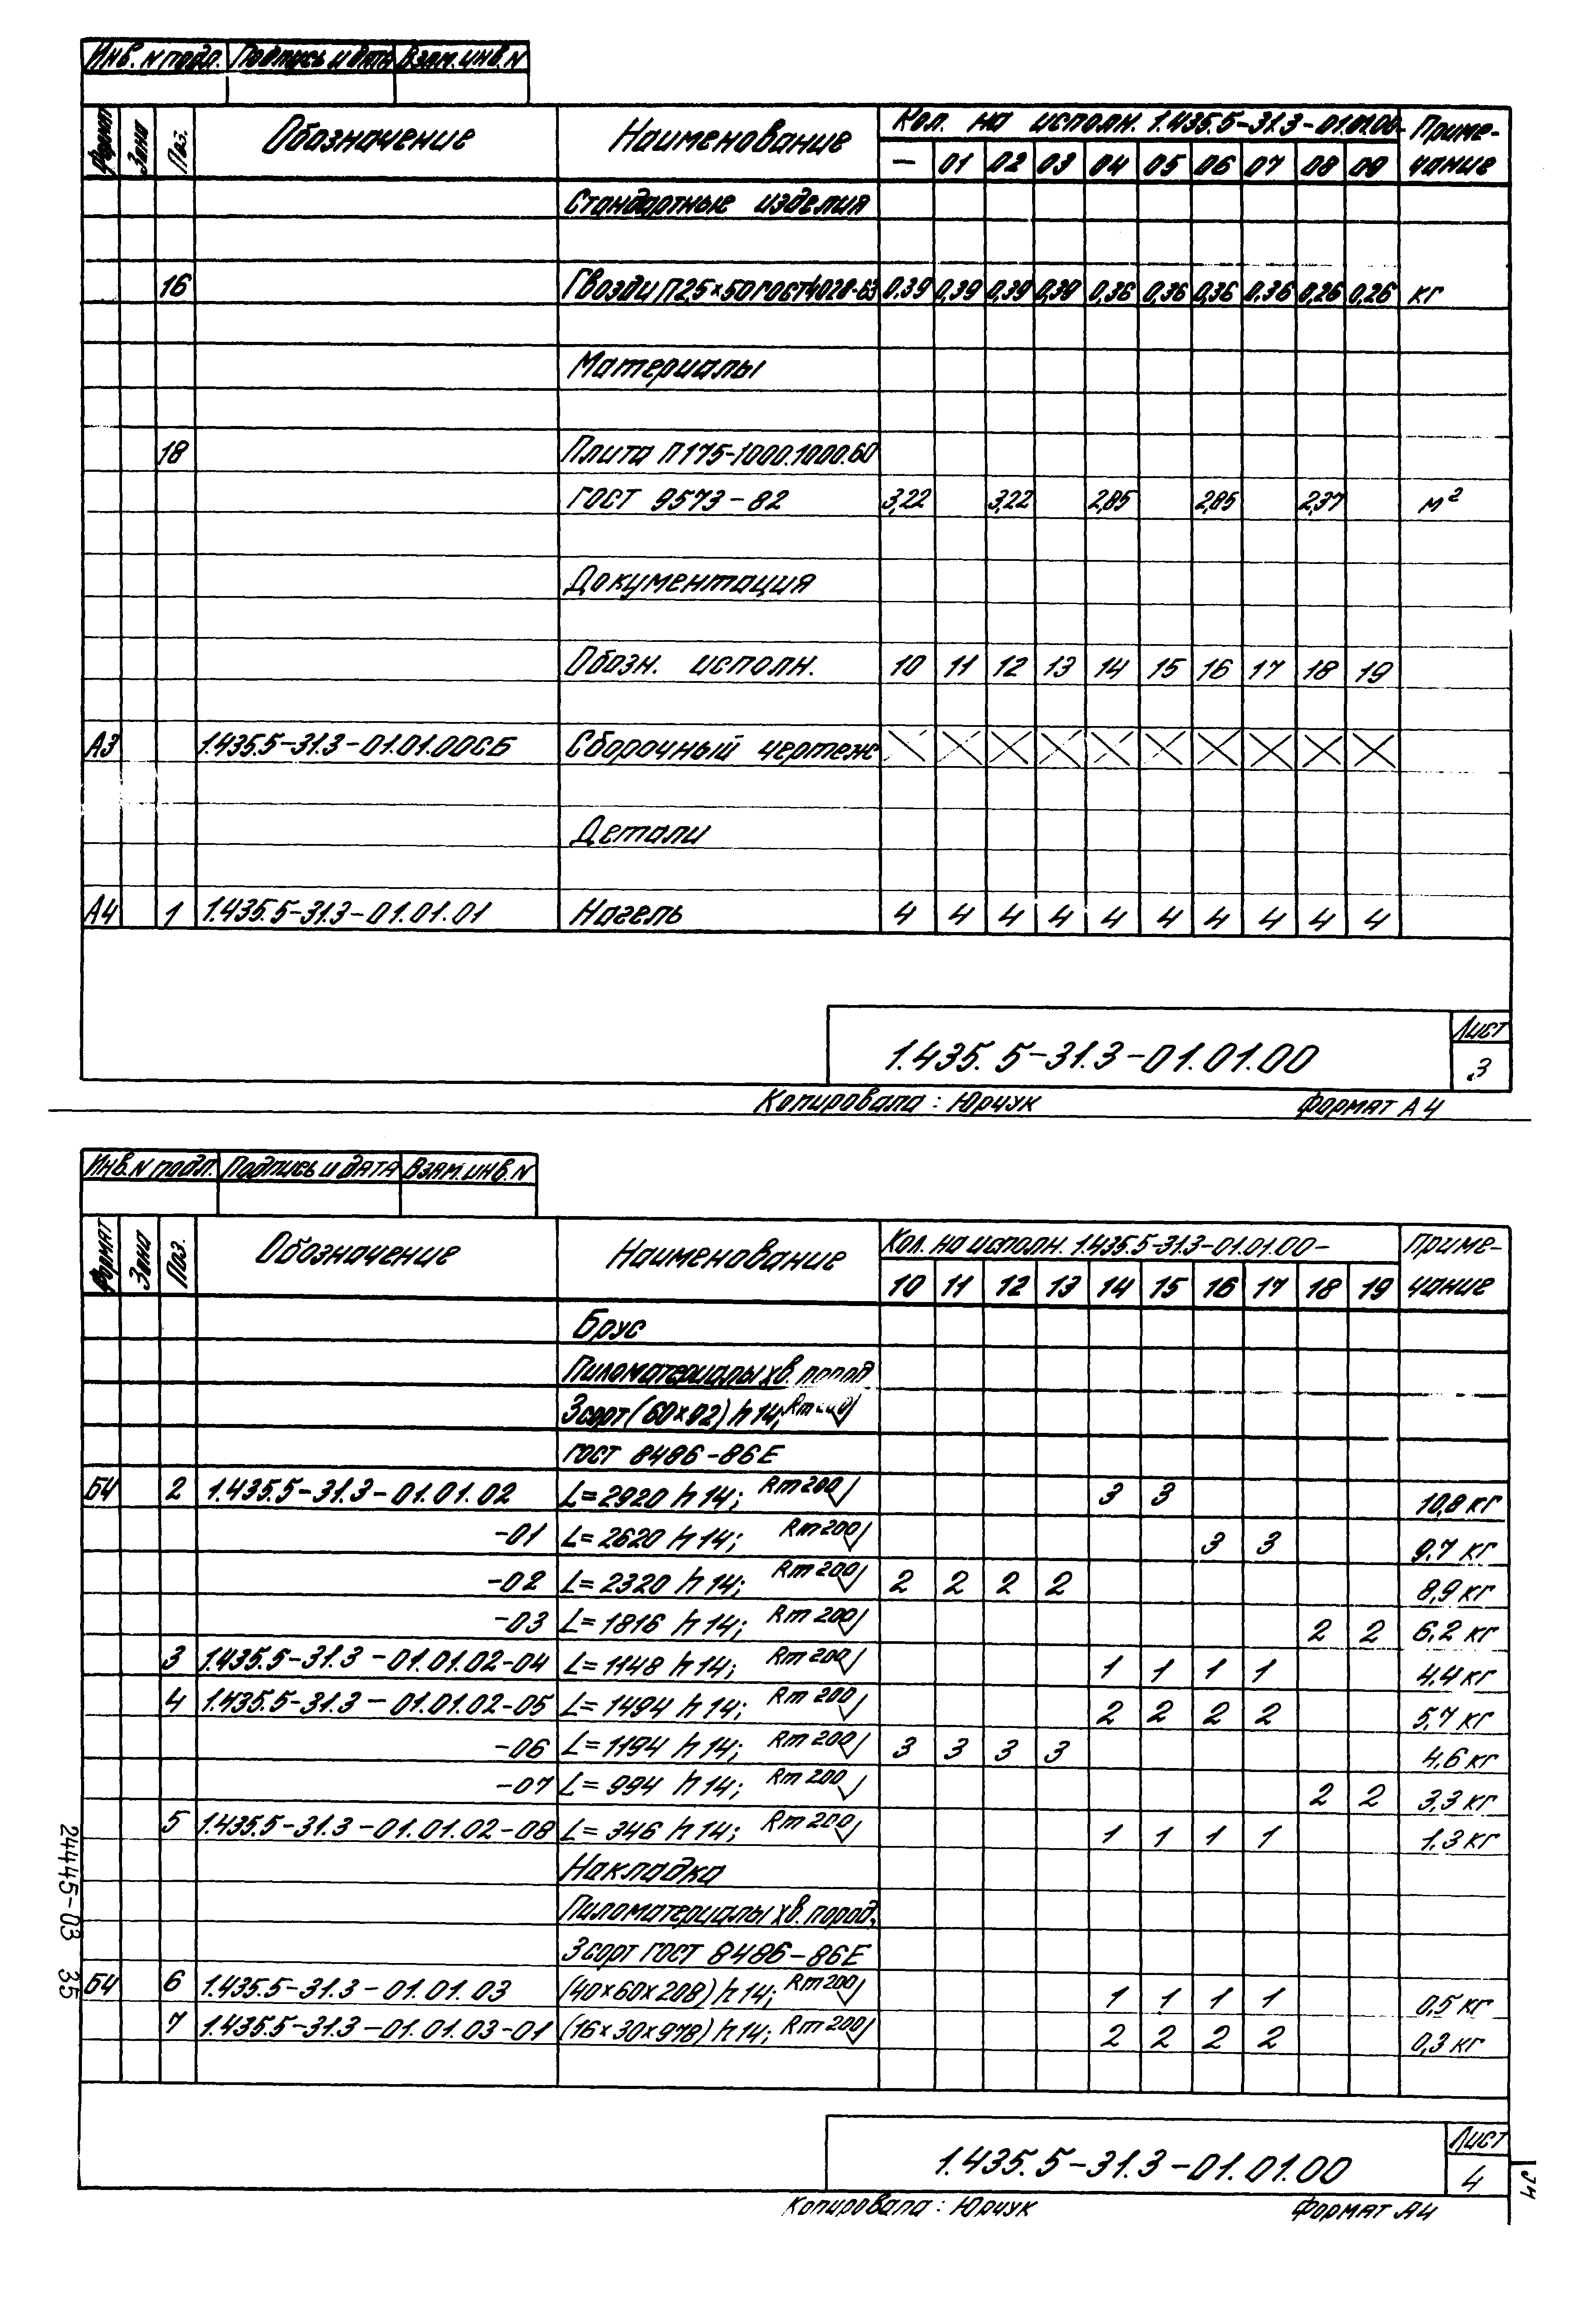 Инв. N подл. Подпись и дата Взам. инв. N
Формат Зона Поз. Обозначение Наименование Кол. на исполн. 1.435.5-31.3-01.01.00- Приме-
— 01 02 03 04 05 06 07 08 09 чание
Стандартные изделия
16 Гвозди П2,5×50 ГОСТ 4028-63 0,39 0,39 0,39 0,39 0,36 0,36 0,36 0,36 0,26 0,26 кг
Материалы
18 Плита П175-1000.1000.60
ГОСТ 9573-82 3,22 3,22 2,85 2,85 2,37 м²
Документация
Обозн. исполн. 10 11 12 13 14 15 16 17 18 19
А3 1.435.5-31.3-01.01.00СБ Сборочный чертеж
Детали
А4 1 1.435.5-31.3-01.01.01 Нагель 4 4 4 4 4 4 4 4 4 4
1.435.5-31.3-01.01.00 Лист
3
Копировала: Юрчук Формат А4
Инв. N подл. Подпись и дата Взам. инв. N
Формат Зона Поз. Обозначение Наименование Кол. на исполн. 1.435.5-31.3-01.01.00- Приме-
10 11 12 13 14 15 16 17 18 19 чание
Брус
Пиломатериалы хв. пород
3 сорт (60×92) h14; Rm 200
ГОСТ 8486-86Е
Б4 2 1.435.5-31.3-01.01.02 L=2920 h14; Rm 200 3 3 10,8 кг
-01 L=2620 h14; Rm 200 3 3 9,7 кг
-02 L=2320 h14; Rm 200 2 2 2 2 8,9 кг
-03 L=1816 h14; Rm 200 2 2 6,2 кг
3 1.435.5-31.3-01.01.02-04 L=1148 h14; Rm 200 1 1 1 1 4,4 кг
4 1.435.5-31.3-01.01.02-05 L=1494 h14; Rm 200 2 2 2 2 5,7 кг
-06 L=1194 h14; Rm 200 3 3 3 3 4,6 кг
-07 L=994 h14; Rm 200 2 2 3,3 кг
5 1.435.5-31.3-01.01.02-08 L=346 h14; Rm 200 1 1 1 1 1,3 кг
Накладка
Пиломатериалы хв. пород,
3 сорт ГОСТ 8486-86Е
Б4 6 1.435.5-31.3-01.01.03 (40×60×208) h14; Rm 200 1 1 1 1 0,5 кг
7 1.435.5-31.3-01.01.03-01 (16×30×978) h14; Rm 200 2 2 2 2 0,3 кг
24445-03 35
1.435.5-31.3-01.01.00 Лист
4
Копировала: Юрчук Формат А4